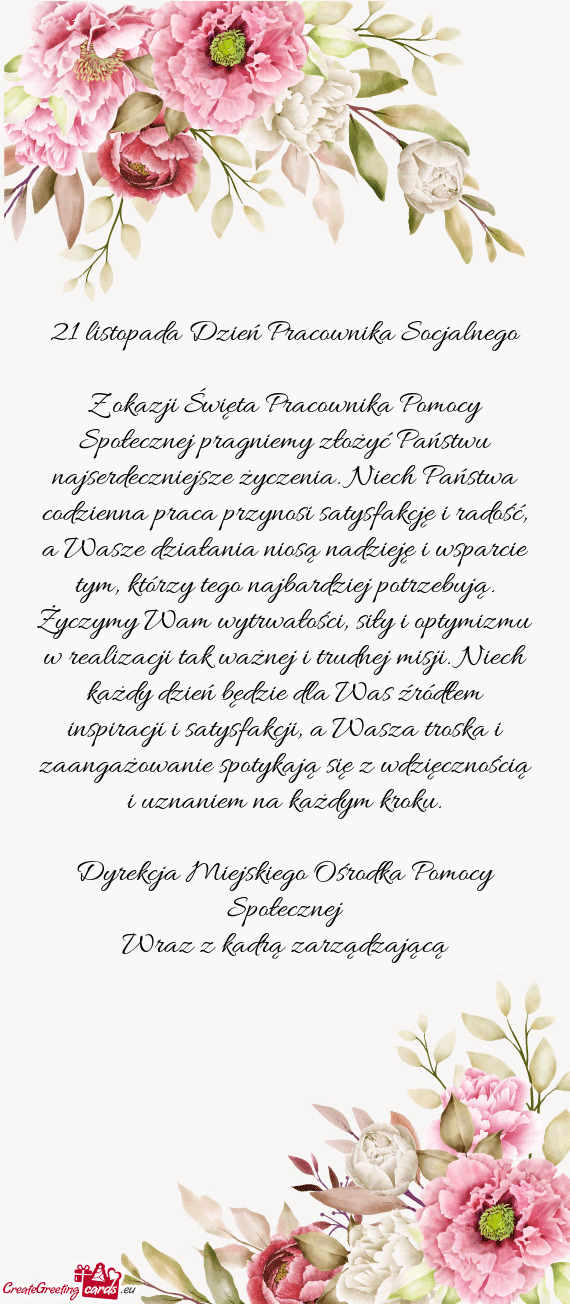 21 listopada Dzień Pracownika Socjalnego
Z okazji Święta Pracownika Pomocy
Społecznej pragniemy złożyć Państwu
najserdeczniejsze życzenia. Niech Państwa
codzienna praca przynosi satysfakcję i radość,
a Wasze działania niosą nadzieję i wsparcie
tym, którzy tego najbardziej potrzebują.
Życzymy Wam wytrwałości, siły i optymizmu
w realizacji tak ważnej i trudnej misji. Niech
każdy dzień będzie dla Was źródłem
inspiracji i satysfakcji, a Wasza troska i
zaangażowanie spotykają się z wdzięcznością
i uznaniem na każdym kroku.
Dyrekcja Miejskiego Ośrodka Pomocy
Społecznej
Wraz z kadrą zarządzającą
CreateGreeting cards .eu